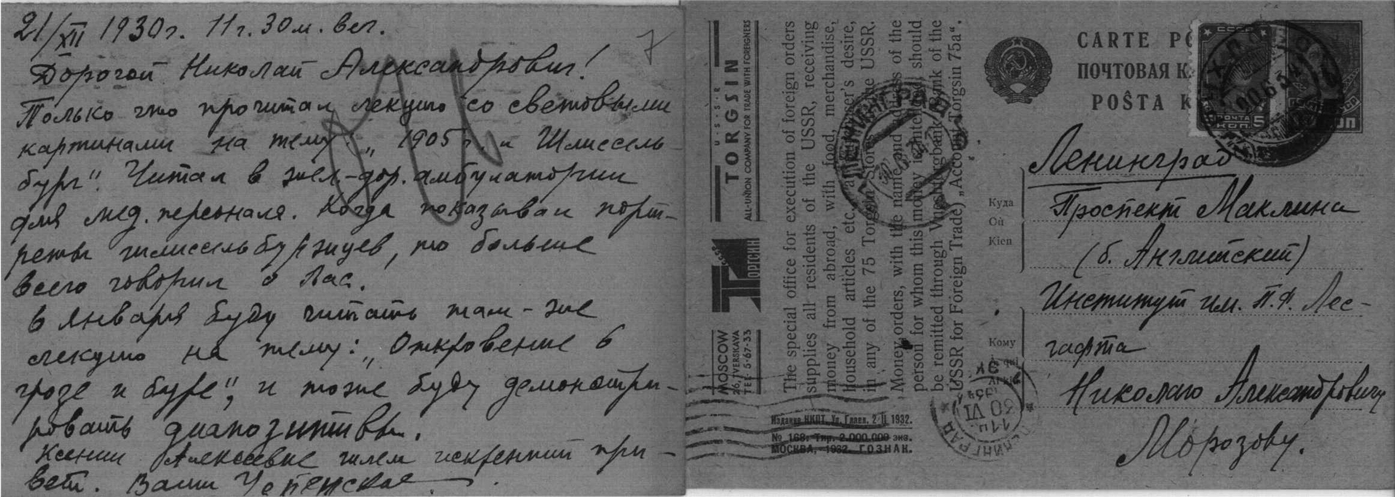 21/XII 1930г. 11 г. 30 м. веч.
7
Дорогой Николай Александрович!
Только что прочитал лекцию со световыми
картинами на тему: „1905 г. и Шлиссель-
бург". Читал в жел-дор. амбулатории
для мед. персонала. Когда показывал порт-
реты шлиссельбуржцев, то больше
всего говорил о Вас.
6 Января буду читать там-же
лекцию на тему: „Откровение в
грозе и буре", и тоже буду демонстри-
ровать диапозитивы.
Ксении Алексеевне шлем искренний при-
вет. Ваши
U·S·S·R
TORGSIN
ALL-UNION COMPANY FOR TRADE WITH FOREIGNERS
ТОРГСИН
MOSCOW
26, TVERSKAYA
TEL. 5-67-33
The special office for execution of foreign orders
supplies all residents of the USSR, receiving
money from abroad, with food, merchandise,
household articles etc. at customer's desire,
in any of the 75 Torgsin Stores in the USSR.
Money orders, with the name and address of the
person for whom this money is intended, should
be remitted through Vneshtorgbank (Bank of the
USSR for Foreign Trade) „Account Torgsin 75a".
Издание НКПТ. 1932.
№ 168. Тир. 2.000.000 экз.
МОСКВА, 1932. ГОЗНАК.
CARTE PO
ПОЧТОВАЯ К
POŜTA K
СССР
ПОЧТА
КОП. 5
ЛЕНИНГРАД
30 VI
Куда
Où
Kien
Кому
Ленинград
Проспект Маклина
(б. Английский)
Институт им. П.Ф. Лес-
гафта
Николаю Александровичу
Морозову.